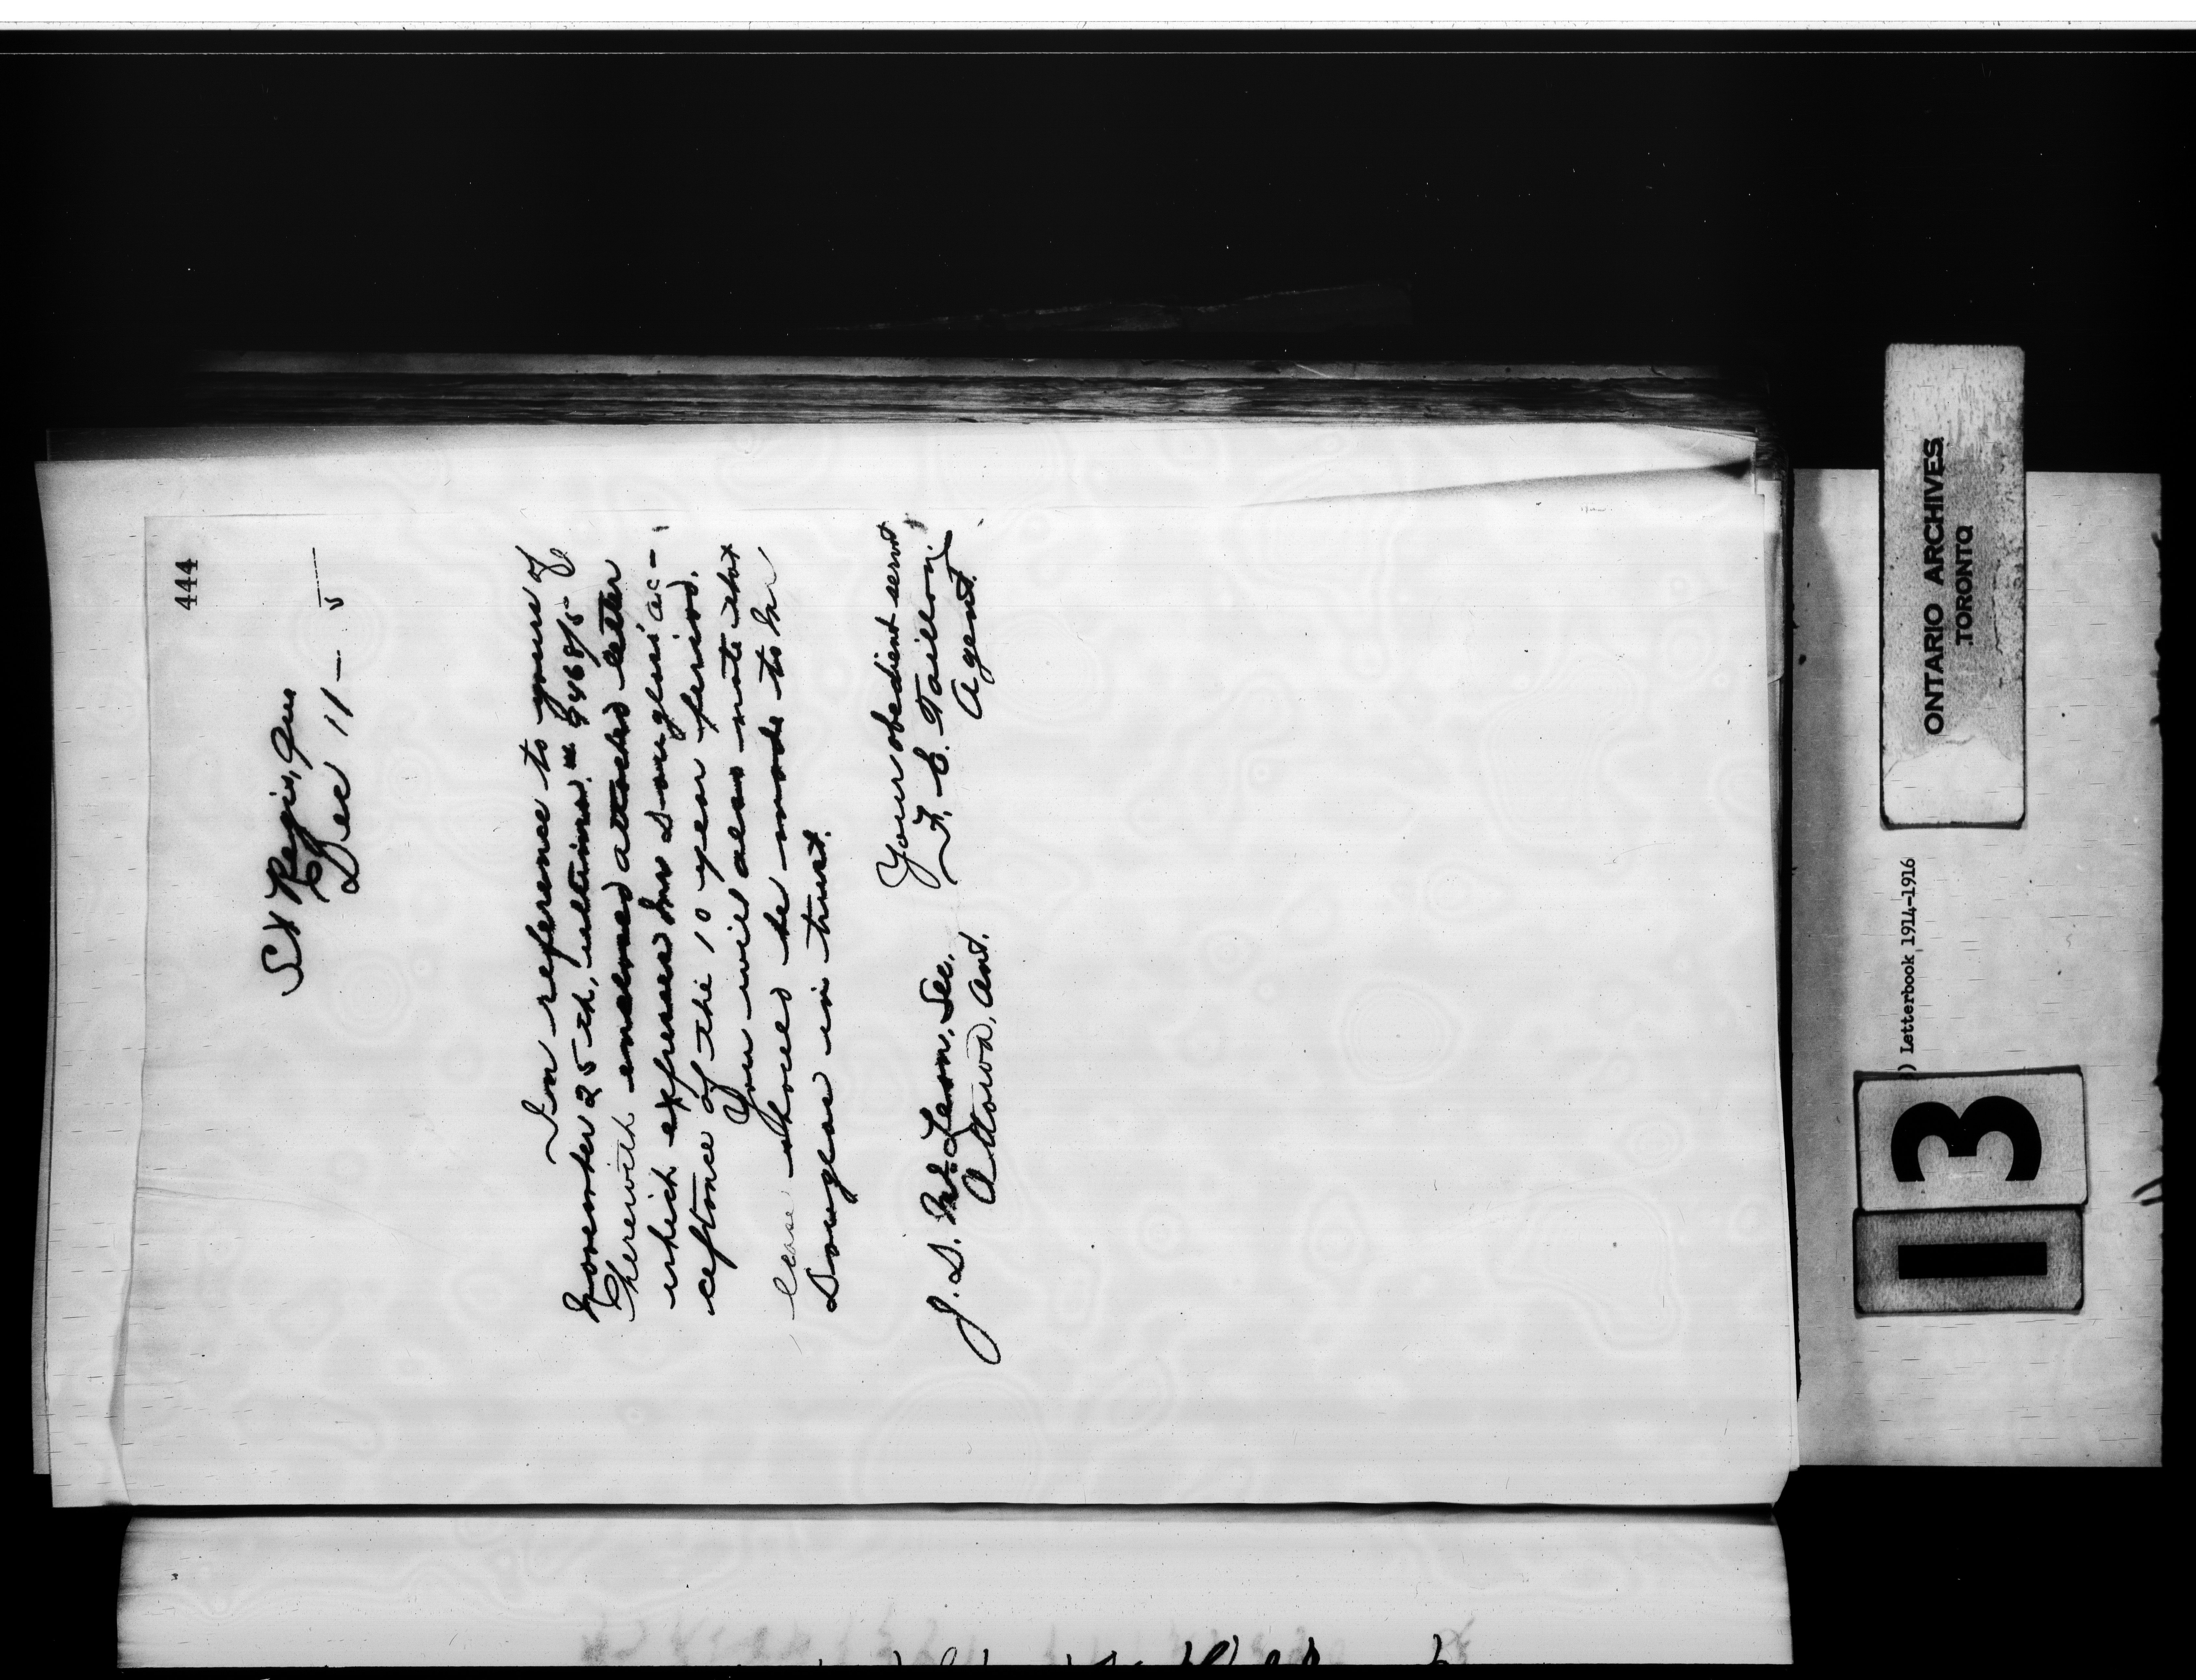 444
St Regis, Que
Dec 11 - 5
In reference to yours of
November 25th, ultimo.
herewith enclosed attached letter
which expresses Mr Douglas' ac-
ceptance of the 10 year period.
You will also note that
lease should be made to Mr
Douglas in trust.
Your obedient servt
F. E. Taillon,
Agent.
J. D. McLean, Sec,
Ottawa, Ont.
ONTARIO ARCHIVES
TORONTO
) Letterbook, 1914-1916
13